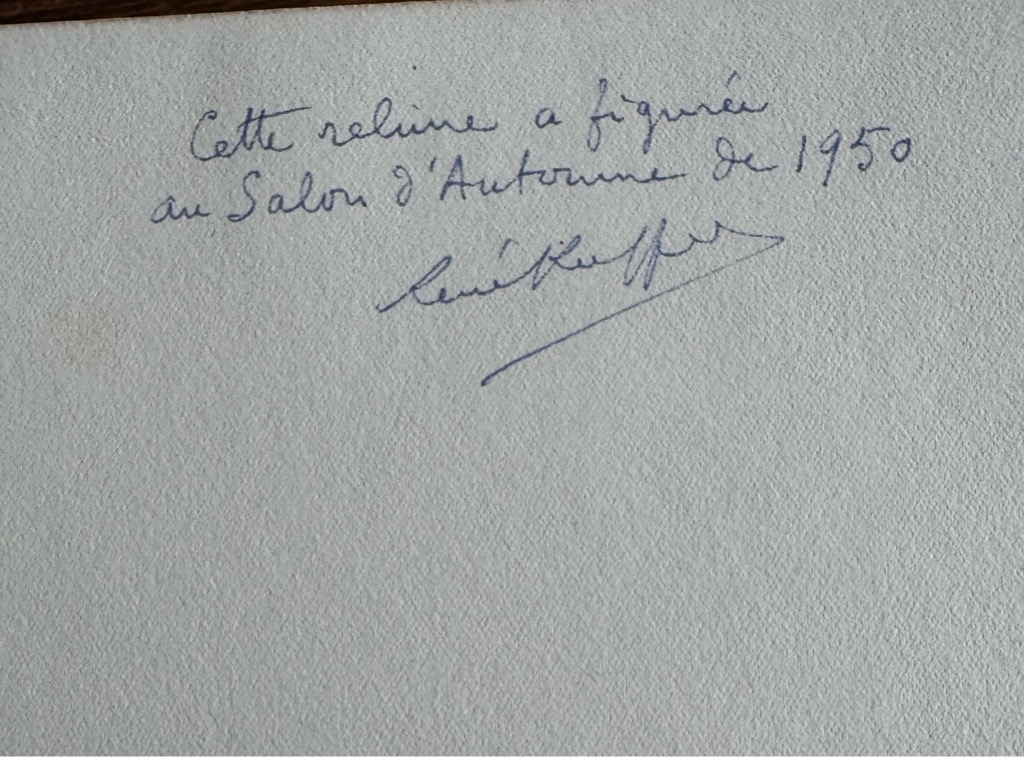 Cette reliure a figurée
au Salon d'Automne de 1950
René Kieffer